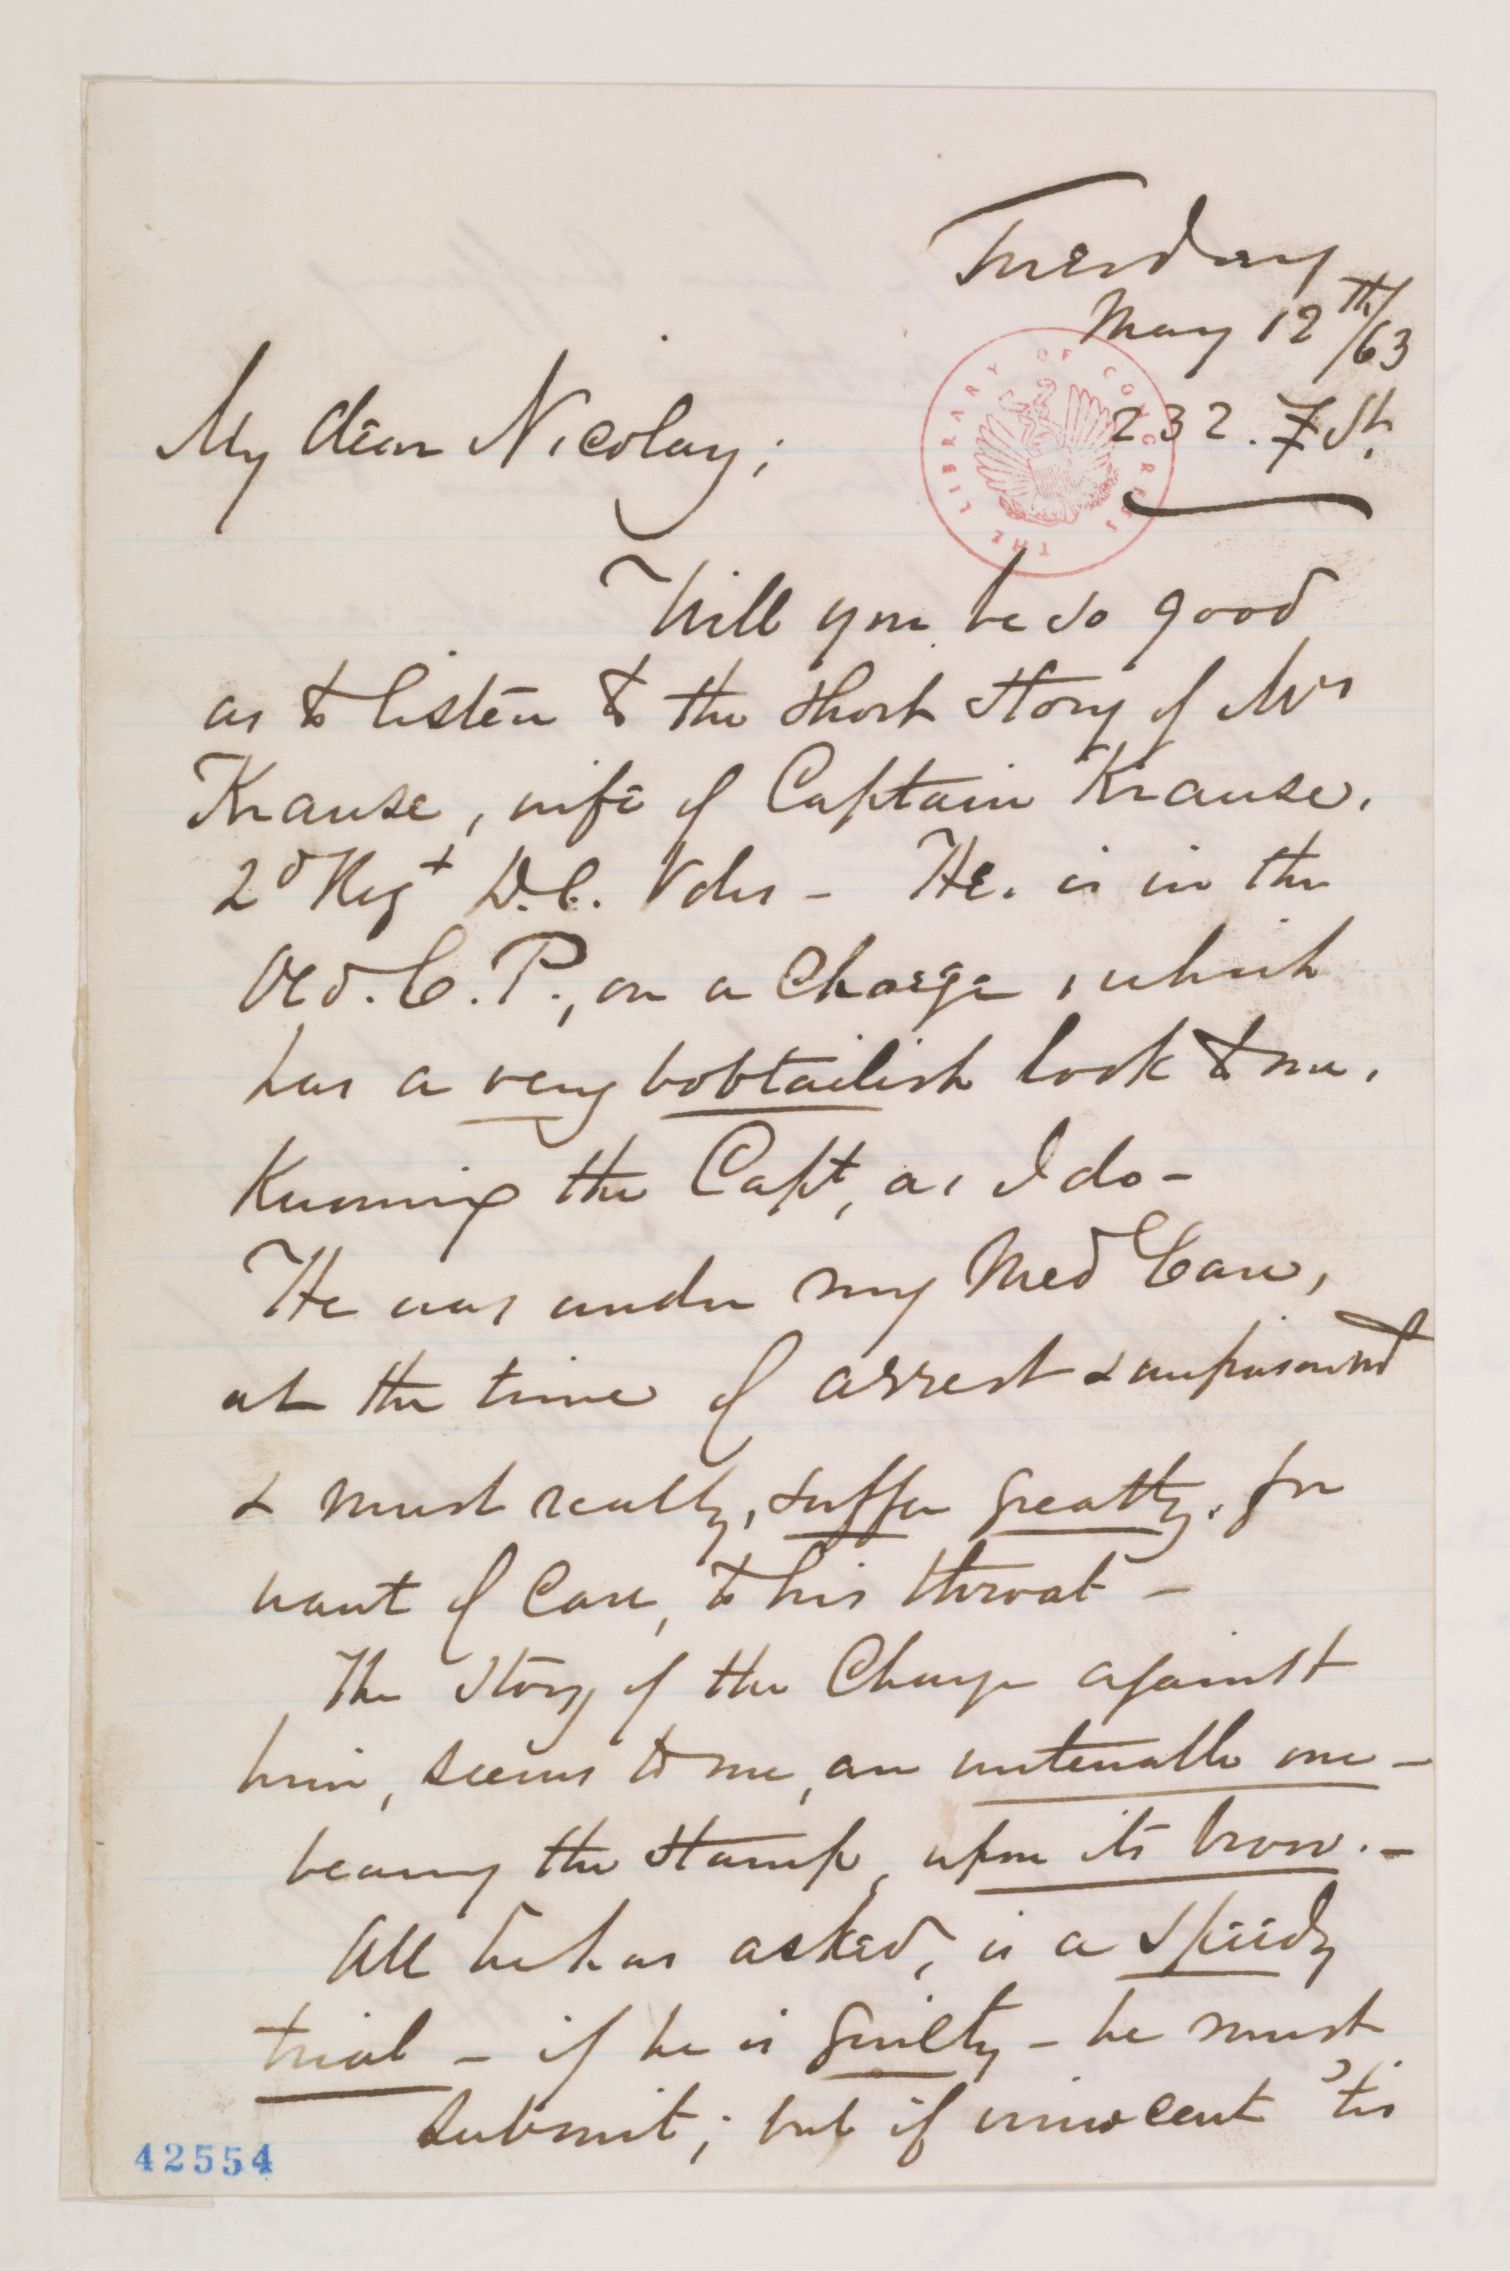 Tuesday
May 12th/63
232. F St.
My dear Nicolay;
Will you be so good
as to listen to the short story of Mrs
Krause, wife of Captain Krause.
2d Regt D.C. Vols - He. is in the
Old. C. P., on a charge, which
has a very bobtailish look to me.
Knowing the Capt, as I do -
He was under my Med Care,
at the time of arrest & imprisonmt
& must really, suffer greatly. for
want of Care, to his throat -
The Story of the Charge against
him, seems to me, an untenable one -
bearing the stamp, upon its brow. -
All he has asked, is a speedy
trial - if he is guilty - he must
submit; but if innocent 'tis
THE LIBRARY OF CONGRESS
42554